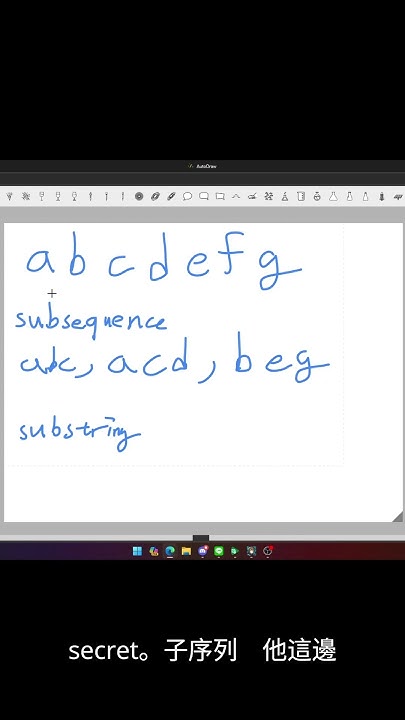 AutoDraw
a b c d e f g
subsequence
abc, acd, beg
substring
secret。子序列 他這邊